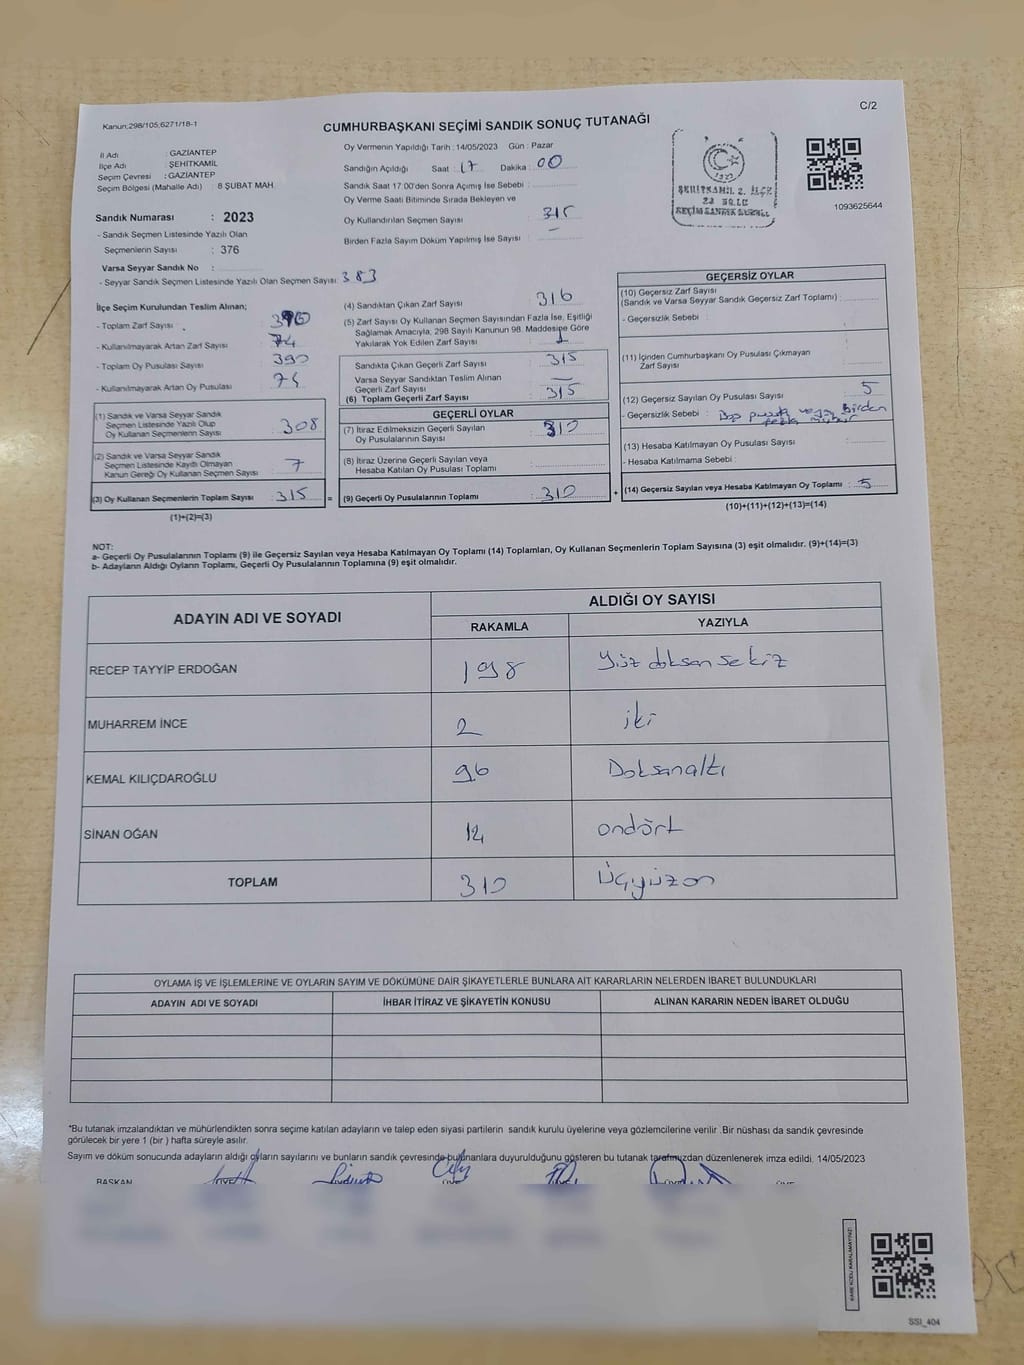 C/2
Kanun:298/105;6271/18-1
CUMHURBAŞKANI SEÇİMİ SANDIK SONUÇ TUTANAĞI
İl Adı : GAZİANTEP
İlçe Adı : ŞEHİTKAMİL
Seçim Çevresi : GAZİANTEP
Seçim Bölgesi (Mahalle Adı) : 8 ŞUBAT MAH.
Sandık Numarası : 2023
- Sandık Seçmen Listesinde Yazılı Olan
Seçmenlerin Sayısı : 376
Varsa Seyyar Sandık No :
- Seyyar Sandık Seçmen Listesinde Yazılı Olan Seçmen Sayısı: 383
Oy Vermenin Yapıldığı Tarih : 14/05/2023 Gün : Pazar
Sandığın Açıldığı Saat : 17 Dakika : 00
Sandık Saat 17:00'den Sonra Açımış İse Sebebi :
Oy Verme Saati Bitiminde Sırada Bekleyen ve
Oy Kullandırılan Seçmen Sayısı : 315
Birden Fazla Sayım Döküm Yapılmış İse Sayısı : –
1923
ŞEHİTKAMİL 2. İLÇE
SEÇİM SANDIK KURULU
1093625644
İlçe Seçim Kurulundan Teslim Alınan;
- Toplam Zarf Sayısı :
- Kullanılmayarak Artan Zarf Sayısı : 74
- Toplam Oy Pusulası Sayısı : 390
- Kullanılmayarak Artan Oy Pusulası :
(1) Sandık ve Varsa Seyyar Sandık
Seçmen Listesinde Yazılı Olup
Oy Kullanan Seçmenlerin Sayısı : 308
(2) Sandık ve Varsa Seyyar Sandık
Seçmen Listesinde Kayıtlı Olmayan
Kanun Gereği Oy Kullanan Seçmen Sayısı : 7
(3) Oy Kullanan Seçmenlerin Toplam Sayısı : 315 =
(1)+(2)=(3)
(4) Sandıktan Çıkan Zarf Sayısı : 316
(5) Zarf Sayısı Oy Kullanan Seçmen Sayısından Fazla İse, Eşitliği
Sağlamak Amacıyla; 298 Sayılı Kanunun 98. Maddesine Göre
Yakılarak Yok Edilen Zarf Sayısı : 1
Sandıkta Çıkan Geçerli Zarf Sayısı : 315
Varsa Seyyar Sandıktan Teslim Alınan
Geçerli Zarf Sayısı : –
(6) Toplam Geçerli Zarf Sayısı : 315
GEÇERLİ OYLAR
(7) İtiraz Edilmeksizin Geçerli Sayılan
Oy Pusulalarının Sayısı : 310
(8) İtiraz Üzerine Geçerli Sayılan veya
Hesaba Katılan Oy Pusulası Toplamı :
(9) Geçerli Oy Pusulalarının Toplamı : 310 +
GEÇERSİZ OYLAR
(10) Geçersiz Zarf Sayısı
(Sandık ve Varsa Seyyar Sandık Geçersiz Zarf Toplamı) :
- Geçersizlik Sebebi :
(11) İçinden Cumhurbaşkanı Oy Pusulası Çıkmayan
Zarf Sayısı :
(12) Geçersiz Sayılan Oy Pusulası Sayısı : 5
- Geçersizlik Sebebi : Boş pusula veya Birden
fazla
(13) Hesaba Katılmayan Oy Pusulası Sayısı :
- Hesaba Katılmama Sebebi :
(14) Geçersiz Sayılan veya Hesaba Katılmayan Oy Toplamı : 5
(10)+(11)+(12)+(13)=(14)
NOT:
a- Geçerli Oy Pusulalarının Toplamı (9) ile Geçersiz Sayılan veya Hesaba Katılmayan Oy Toplamı (14) Toplamları, Oy Kullanan Seçmenlerin Toplam Sayısına (3) eşit olmalıdır. (9)+(14)=(3)
b- Adayların Aldığı Oyların Toplamı, Geçerli Oy Pusulalarının Toplamına (9) eşit olmalıdır.
ADAYIN ADI VE SOYADI ALDIĞI OY SAYISI
RAKAMLA YAZIYLA
RECEP TAYYİP ERDOĞAN 198 Yüz doksan sekiz
MUHARREM İNCE 2 iki
KEMAL KILIÇDAROĞLU 96 Doksanaltı
SİNAN OĞAN 14 ondört
TOPLAM 310 Üçyüzon
OYLAMA İŞ VE İŞLEMLERİNE VE OYLARIN SAYIM VE DÖKÜMÜNE DAİR ŞİKAYETLERLE BUNLARA AİT KARARLARIN NELERDEN İBARET BULUNDUKLARI
ADAYIN ADI VE SOYADI İHBAR İTİRAZ VE ŞİKAYETİN KONUSU ALINAN KARARIN NEDEN İBARET OLDUĞU
*Bu tutanak imzalandıktan ve mühürlendikten sonra seçime katılan adayların ve talep eden siyasi partilerin sandık kurulu üyelerine veya gözlemcilerine verilir .Bir nüshası da sandık çevresinde
görülecek bir yere 1 (bir ) hafta süreyle asılır.
Sayım ve döküm sonucunda adayların aldığı oyların sayılarını ve bunların sandık çevresinde bulunanlara duyurulduğunu gösteren bu tutanak tarafımızdan düzenlenerek imza edildi. 14/05/2023
BAŞKAN
KARE KODU KARALAMAYINIZ!
SSI_404